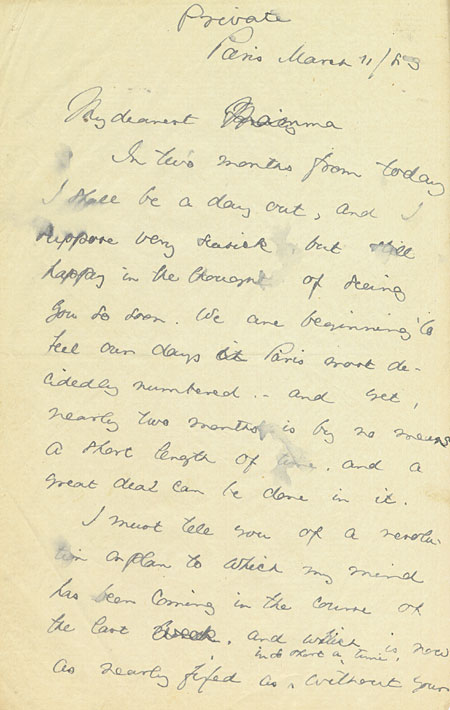 Private
Paris March 11/89
My dearest Mamma
In two months from today
I shall be a day out, and I
suppose very seasick but still
happy in the thought of seeing
you so soon. We are beginning to
feel our days at Paris most de-
cidedly numbered. - and yet,
nearly two months is by no means
a short length of time, and a
great deal can be done in it.
I must tell you of a revolu-
tion in plan to which my mind
has been coming in the course of
the last week, and which is now
in so short a time,
as nearly fixed as, without your